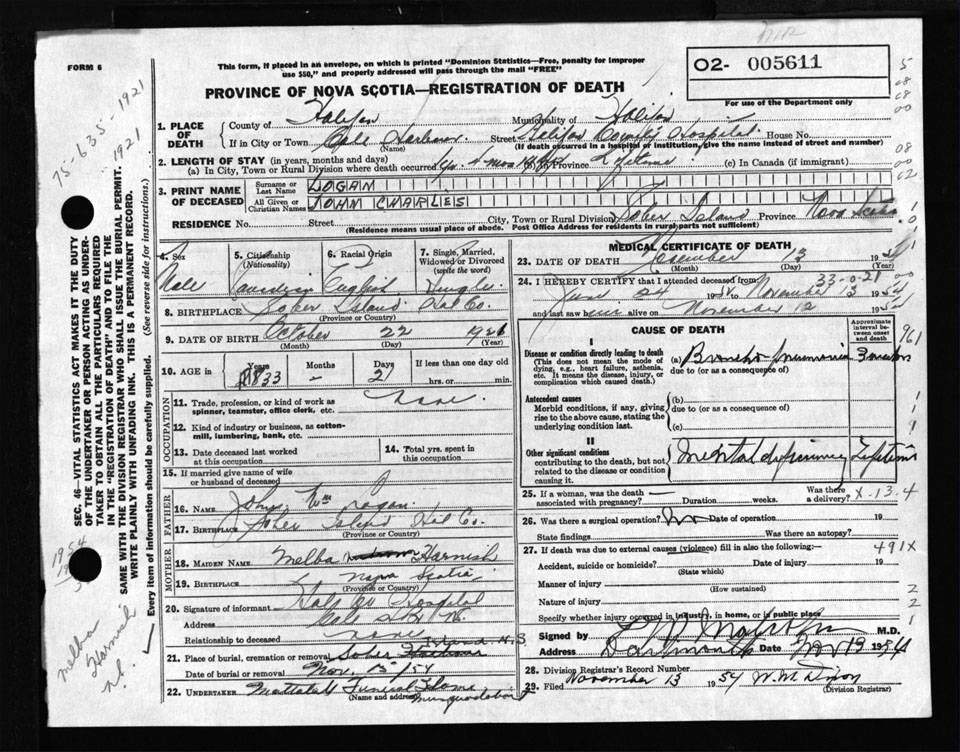 FORM 6
This form, if placed in an envelope, on which is printed "Dominion Statistics—Free, penalty for improper use $50," and properly addressed will pass through the mail "FREE"
O2- 005611
For use of the Department only
PROVINCE OF NOVA SCOTIA—REGISTRATION OF DEATH
1. PLACE OF DEATH
County of Halifax Municipality of Halifax
If in City or Town Cole Harbour (Name) Street Halifax County Hospital House No.
(If death occurred in a hospital or institution, give the name instead of street and number)
2. LENGTH OF STAY (in years, months and days)
(a) In City, Town or Rural Division where death occurred (b) Province Lifetime (c) In Canada (if immigrant)
3. PRINT NAME OF DECEASED
Surname or Last Name LOGAN
All Given or Christian Names JOHN CHARLES
RESIDENCE No. Street City, Town or Rural Division Sober Island Province Nova Scotia
(Residence means usual place of abode. Post Office Address for residents in rural parts not sufficient)
4. Sex Male
5. Citizenship (Nationality) Canadian
6. Racial Origin English
7. Single, Married, Widowed or Divorced (write the word) Single
8. BIRTHPLACE Sober Island Hal Co. (Province or Country)
9. DATE OF BIRTH October (Month) 22 (Day) 1921 (Year)
10. AGE in Years 33 Months - Days 21 If less than one day old hrs. or min.
OCCUPATION
11. Trade, profession, or kind of work as spinner, teamster, office clerk, etc. None.
12. Kind of industry or business, as cotton-mill, lumbering, bank, etc.
13. Date deceased last worked at this occupation
14. Total yrs. spent in this occupation
15. If married give name of wife or husband of deceased
FATHER
16. Name John Wm Logan
17. Birthplace Sober Island Hal Co. (Province or Country)
MOTHER
18. MAIDEN NAME Melba Harnish
19. BIRTHPLACE Nova Scotia (Province or Country)
20. Signature of informant Hal Co Hospital
Address Cole Hbr N.S
Relationship to deceased None
21. Place of burial, cremation or removal Sober Island N.S
Date of burial or removal Nov. 15/54
22. UNDERTAKER Mattatall Funeral Home Musquodoboit (Name and address)
MEDICAL CERTIFICATE OF DEATH
23. DATE OF DEATH November (Month) 13 (Day) 1954 (Year)
33-0-21
24. I HEREBY CERTIFY that I attended deceased from
June 24 1954 to November 13 1954
and last saw him alive on November 12 1954
CAUSE OF DEATH
Approximate interval between onset and death
I
Disease or condition directly leading to death
(This does not mean the mode of dying, e.g., heart failure, asthenia, etc. It means the disease, injury, or complication which caused death.)
(a) Broncho pneumonia
due to (or as a consequence of)
Antecedent causes
Morbid conditions, if any, giving rise to the above cause, stating the underlying condition last.
(b)
due to (or as a consequence of)
(c)
II
Other significant conditions
contributing to the death, but not related to the disease or condition causing it.
Mental deficiency Lifetime
25. If a woman, was the death associated with pregnancy? Duration weeks. Was there a delivery?
X-13.4
26. Was there a surgical operation? No Date of operation 19
State findings Was there an autopsy?
27. If death was due to external causes (violence) fill in also the following:—
491X
Accident, suicide or homicide? (State which) Date of injury 19
Manner of injury (How sustained)
Nature of injury
Specify whether injury occurred in industry, in home, or in public place
Signed by M.D.
Address Dartmouth Date Nov 13 1954
28. Division Registrar's Record Number
29. Filed November 13 1954 W.M. Dixon (Division Registrar)
SEC. 46—VITAL STATISTICS ACT MAKES IT THE DUTY OF THE UNDERTAKER OR PERSON ACTING AS UNDERTAKER TO OBTAIN ALL THE PARTICULARS REQUIRED IN THE "REGISTRATION OF DEATH" AND TO FILE THE SAME WITH THE DIVISION REGISTRAR WHO SHALL ISSUE THE BURIAL PERMIT.
WRITE PLAINLY WITH UNFADING INK. THIS IS A PERMANENT RECORD.
Every item of information should be carefully supplied. (See reverse side for instructions.)
75-635-1921
1921
1954
Melba Harnish
961